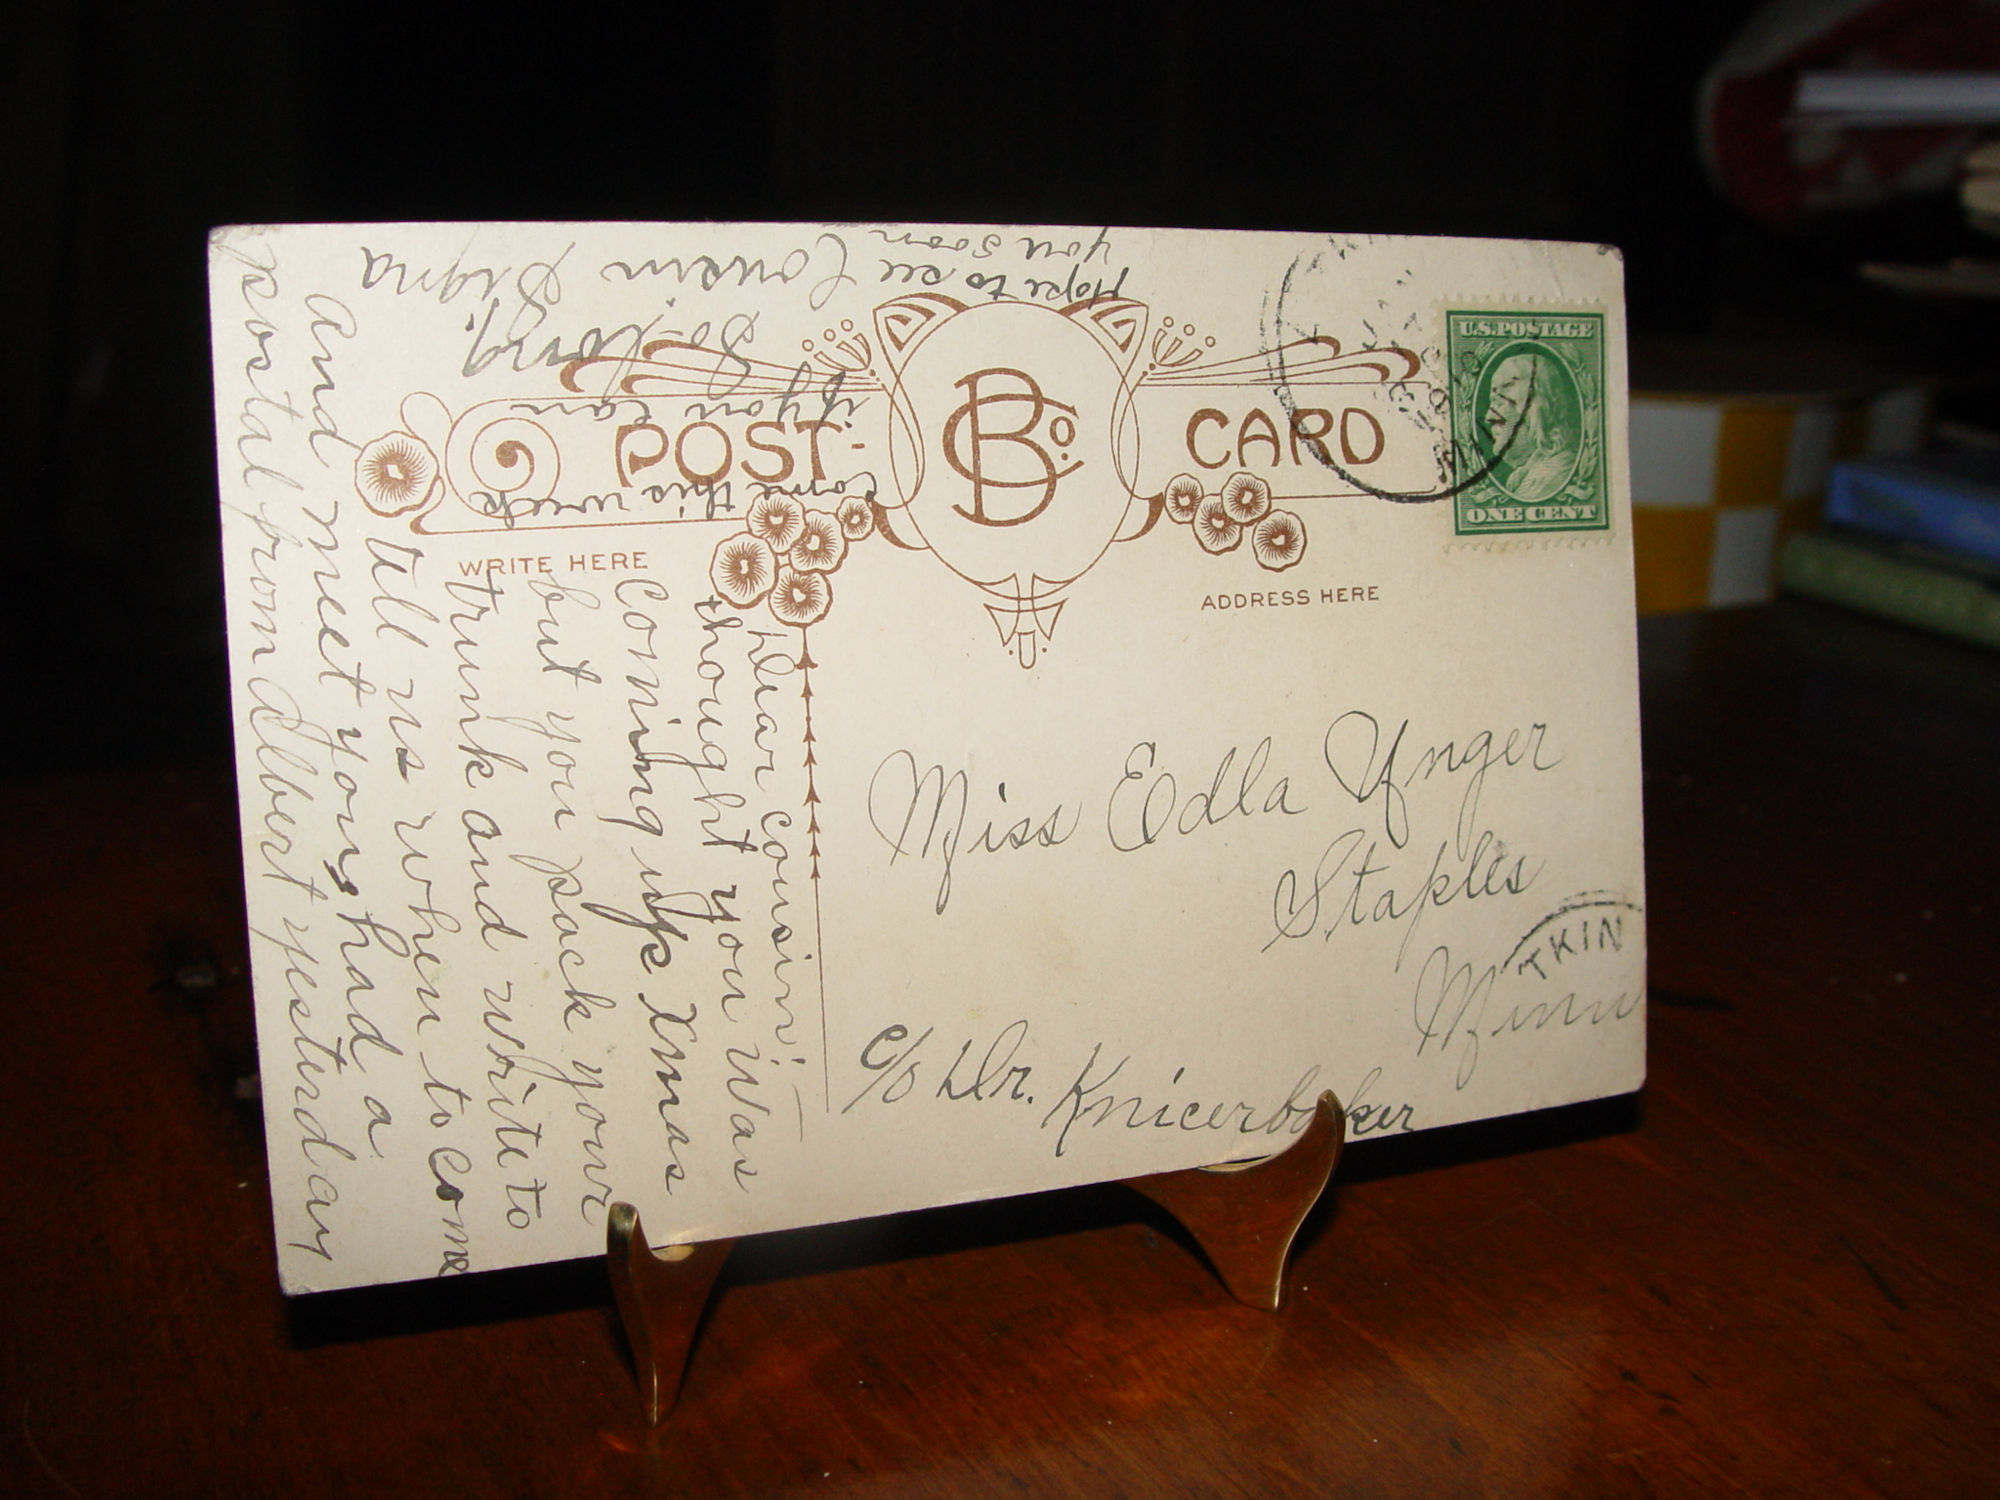 POST CARD
BCo.
U.S. POSTAGE
ONE CENT
WRITE HERE
ADDRESS HERE
Dear Cousin'
thought you was
coming up Xmas
but you pack your
trunk and write to
tell us when to come
and meet you, had a
postal from Albert yesterday
come this week
if you can
So-long.
Cousin Signa
Hope to see
you soon
Miss Edla Unger
Staples
Minn
c/o Dr. Knicerbocker
JAN
MINN
TKIN